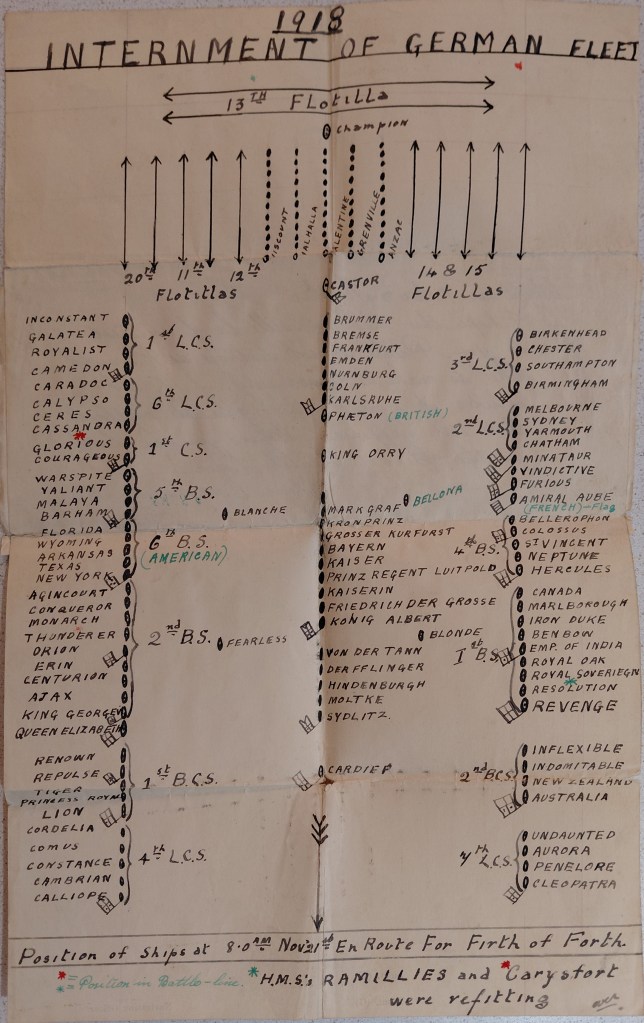 1918
INTERNMENT OF GERMAN FLEET
13TH FLOTILLA
CHAMPION
VISCOUNT
VALHALLA
VALENTINE
GRENVILLE
ANZAC
20TH 11TH 12TH
FLOTILLAS
14 & 15
FLOTILLAS
CASTOR
INCONSTANT
GALATEA
ROYALIST
CAMEDON
1st L.C.S.
CARADOC
CALYPSO
CERES
CASSANDRA
6TH L.C.S.
GLORIOUS
COURAGEOUS
1st C.S.
WARSPITE
VALIANT
MALAYA
BARHAM
5TH B.S.
BLANCHE
FLORIDA
WYOMING
ARKANSAS
TEXAS
NEW YORK
6TH B.S.
(AMERICAN)
AGINCOURT
CONQUEROR
MONARCH
THUNDERER
ORION
ERIN
CENTURION
AJAX
KING GEORGE V
2nd B.S.
FEARLESS
QUEEN ELIZABETH
RENOWN
REPULSE
TIGER
PRINCESS ROYAL
LION
1st B.C.S.
CORDELIA
COMUS
CONSTANCE
CAMBRIAN
CALLIOPE
4TH L.C.S.
BRUMMER
BREMSE
FRANKFURT
EMDEN
NURNBURG
COLN
KARLSRUHE
PHÆTON (BRITISH)
KING ORRY
MARKGRAF
BELLONA
KRONPRINZ
GROSSER KURFURST
BAYERN
KAISER
PRINZ REGENT LUITPOLD
KAISERIN
FRIEDRICH DER GROSSE
KÖNIG ALBERT
BLONDE
VON DER TANN
DERFFLINGER
HINDENBURGH
MOLTKE
SYDLITZ.
CARDIFF
BIRKENHEAD
CHESTER
SOUTHAMPTON
BIRMINGHAM
3rd L.C.S.
MELBOURNE
SYDNEY
YARMOUTH
CHATHAM
2nd L.C.S.
MINATAUR
VINDICTIVE
FURIOUS
AMIRAL AUBE
(FRENCH)-Flag
BELLEROPHON
COLOSSUS
ST VINCENT
NEPTUNE
HERCULES
4th B.S.
CANADA
MARLBOROUGH
IRON DUKE
BENBOW
EMP. OF INDIA
ROYAL OAK
ROYAL SOVERIEGN
RESOLUTION
REVENGE
1st B.S.
INFLEXIBLE
INDOMITABLE
NEW ZEALAND
AUSTRALIA
2nd B.C.S.
UNDAUNTED
AURORA
PENELORE
CLEOPATRA
7TH L.C.S.
Position of Ships at 8.0 AM Nov: 21st En Route For Firth of Forth.
* * = Position in Battle-line. * H.M.S.'s RAMILLIES and * Carysfort
were refitting